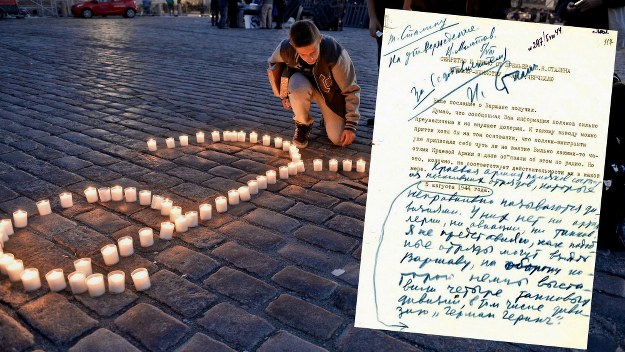 т. Сталину
На утверждение
В. Молотов.
5/VIII
За
И. Сталин
СЕКРЕТНО И ЛИЧНО ОТ ПРЕМЬЕРА И.В.СТАЛИНА
ЧЕРЧИЛЛЮ
Ваше послание о Варшаве получил.
Думаю, что сообщенная Вам информация поляков сильно
преувеличена и не внушает доверия. К такому выводу можно
притти хотя бы на том основании, что поляки-эмигранты
уже приписали себе чуть ли не взятие Вильно какими-то ча-
стями Краевой Армии и даже об'явили об этом по радио. Но
это, конечно, не соответствует действительности ни в какой
мере.
5 августа 1944 года.
Краевая армия поляков состоит
из нескольких отрядов, которые
неправильно называются ди-
визиями. У них нет ни артил-
лерии, ни авиации, ни танков.
Я не представляю, как подоб-
ные отряды могут взять
Варшаву, на оборону ко-
торой немцы выста-
вили четыре танковых
дивизии, в том числе диви-
зию „Герман Геринг".